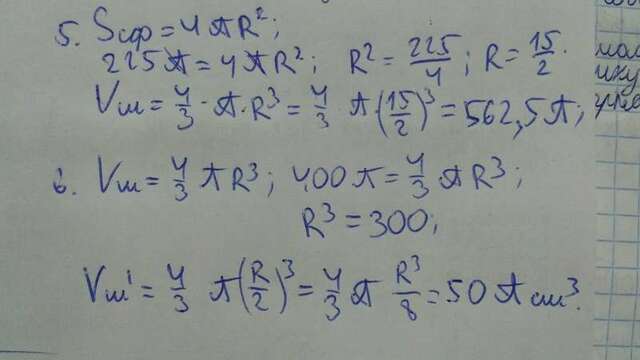 5. Sсф = 4πR²;
225π = 4πR²; R² = 225/4; R = 15/2.
Vш = 4/3 · π · R³ = 4/3 π (15/2)³ = 562,5π;
6. Vш = 4/3 πR³; 400π = 4/3 πR³;
R³ = 300;
Vш' = 4/3 π (R/2)³ = 4/3 π R³/8 = 50π см³.